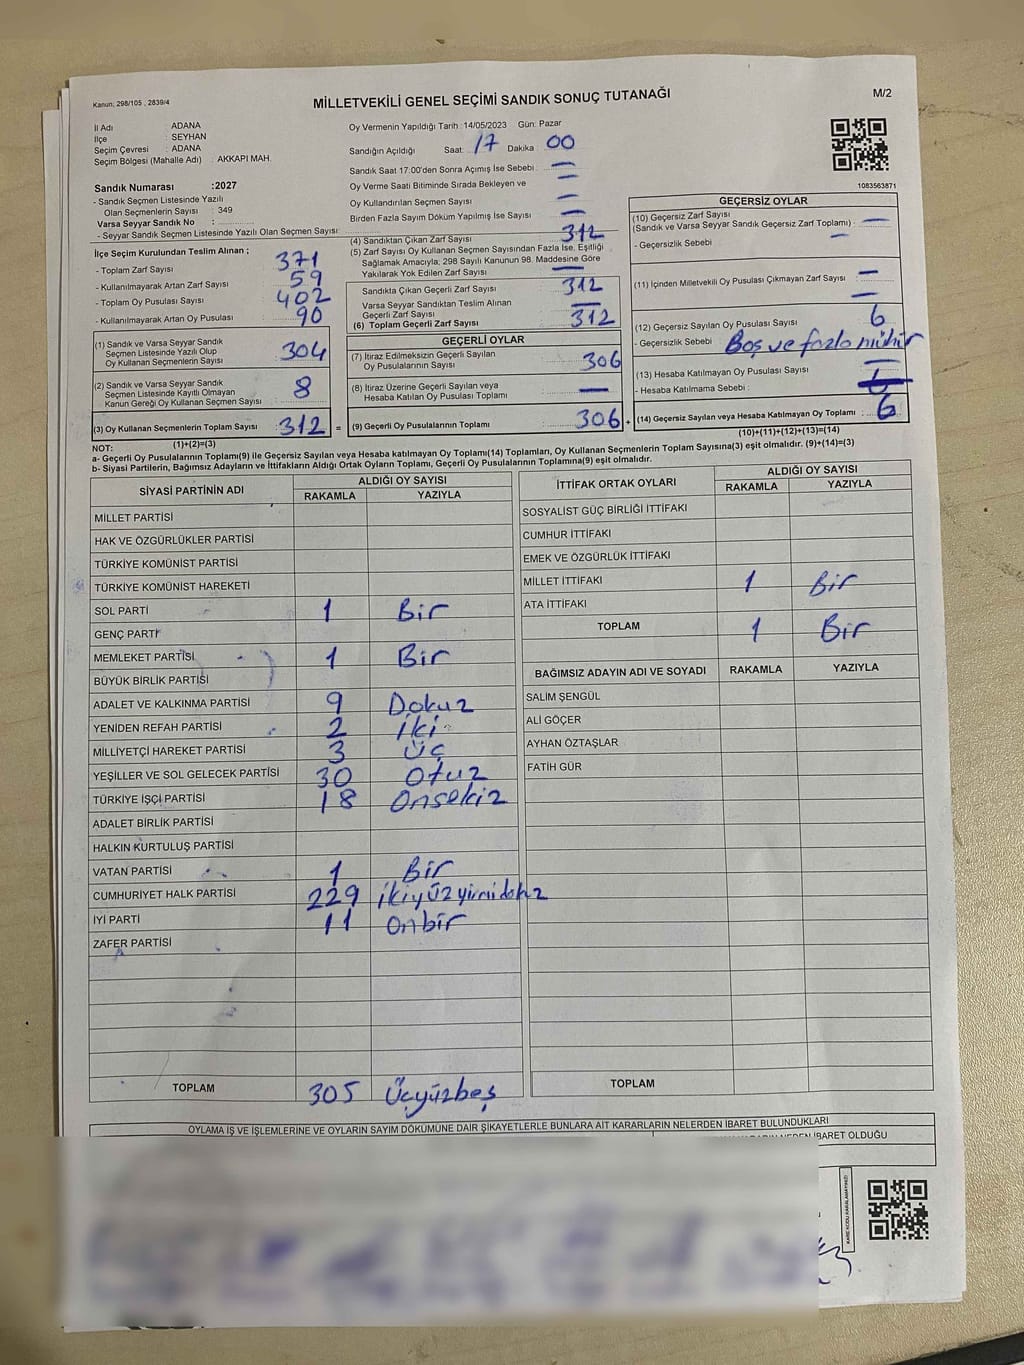 Kanun; 298/105 , 2839/4
MİLLETVEKİLİ GENEL SEÇİMİ SANDIK SONUÇ TUTANAĞI
M/2
İl Adı ADANA
İlçe : SEYHAN
Seçim Çevresi : ADANA
Seçim Bölgesi (Mahalle Adı) : AKKAPI MAH.
Sandık Numarası :2027
- Sandık Seçmen Listesinde Yazılı
Olan Seçmenlerin Sayısı : 349
Varsa Seyyar Sandık No :
- Seyyar Sandık Seçmen Listesinde Yazılı Olan Seçmen Sayısı:
Oy Vermenin Yapıldığı Tarih : 14/05/2023 Gün: Pazar
Sandığın Açıldığı Saat: 17 Dakika: 00
Sandık Saat 17:00'den Sonra Açımış İse Sebebi : —
Oy Verme Saati Bitiminde Sırada Bekleyen ve —
Oy Kullandırılan Seçmen Sayısı —
Birden Fazla Sayım Döküm Yapılmış İse Sayısı —
1083563871
İlçe Seçim Kurulundan Teslim Alınan ;
- Toplam Zarf Sayısı : 371
- Kullanılmayarak Artan Zarf Sayısı : 59
- Toplam Oy Pusulası Sayısı : 402
- Kullanılmayarak Artan Oy Pusulası : 90
(1) Sandık ve Varsa Seyyar Sandık
Seçmen Listesinde Yazılı Olup
Oy Kullanan Seçmenlerin Sayısı : 304
(2) Sandık ve Varsa Seyyar Sandık
Seçmen Listesinde Kayıtlı Olmayan
Kanun Gereği Oy Kullanan Seçmen Sayısı : 8
(3) Oy Kullanan Seçmenlerin Toplam Sayısı : 312 =
(1)+(2)=(3)
(4) Sandıktan Çıkan Zarf Sayısı : 312
(5) Zarf Sayısı Oy Kullanan Seçmen Sayısından Fazla İse, Eşitliği
Sağlamak Amacıyla; 298 Sayılı Kanunun 98. Maddesine Göre
Yakılarak Yok Edilen Zarf Sayısı : —
Sandıkta Çıkan Geçerli Zarf Sayısı : 312
Varsa Seyyar Sandıktan Teslim Alınan
Geçerli Zarf Sayısı : —
(6) Toplam Geçerli Zarf Sayısı : 312
GEÇERLİ OYLAR
(7) İtiraz Edilmeksizin Geçerli Sayılan
Oy Pusulalarının Sayısı : 306
(8) İtiraz Üzerine Geçerli Sayılan veya
Hesaba Katılan Oy Pusulası Toplamı : —
(9) Geçerli Oy Pusulalarının Toplamı : 306 +
GEÇERSİZ OYLAR
(10) Geçersiz Zarf Sayısı
(Sandık ve Varsa Seyyar Sandık Geçersiz Zarf Toplamı) : —
- Geçersizlik Sebebi : —
(11) İçinden Milletvekili Oy Pusulası Çıkmayan Zarf Sayısı : —
—
(12) Geçersiz Sayılan Oy Pusulası Sayısı : 6
- Geçersizlik Sebebi : Boş ve fazla mühür
(13) Hesaba Katılmayan Oy Pusulası Sayısı : —
- Hesaba Katılmama Sebebi :
(14) Geçersiz Sayılan veya Hesaba Katılmayan Oy Toplamı : 6
(10)+(11)+(12)+(13)=(14)
NOT:
a- Geçerli Oy Pusulalarının Toplamı(9) ile Geçersiz Sayılan veya Hesaba katılmayan Oy Toplamı(14) Toplamları, Oy Kullanan Seçmenlerin Toplam Sayısına(3) eşit olmalıdır. (9)+(14)=(3)
b- Siyasi Partilerin, Bağımsız Adayların ve İttifakların Aldığı Ortak Oyların Toplamı, Geçerli Oy Pusulalarının Toplamına(9) eşit olmalıdır.
SİYASİ PARTİNİN ADI
ALDIĞI OY SAYISI
RAKAMLA YAZIYLA
MİLLET PARTİSİ
HAK VE ÖZGÜRLÜKLER PARTİSİ
TÜRKİYE KOMÜNİST PARTİSİ
TÜRKİYE KOMÜNİST HAREKETİ
SOL PARTİ 1 Bir
GENÇ PARTİ
MEMLEKET PARTİSİ 1 Bir
BÜYÜK BİRLİK PARTİSİ
ADALET VE KALKINMA PARTİSİ 9 Dokuz
YENİDEN REFAH PARTİSİ 2 İki
MİLLİYETÇİ HAREKET PARTİSİ 3 Üç
YEŞİLLER VE SOL GELECEK PARTİSİ 30 Otuz
TÜRKİYE İŞÇİ PARTİSİ 18 Onsekiz
ADALET BİRLİK PARTİSİ
HALKIN KURTULUŞ PARTİSİ
VATAN PARTİSİ 1 Bir
CUMHURİYET HALK PARTİSİ 229 ikiyüzyirmidokuz
İYİ PARTİ 11 Onbir
ZAFER PARTİSİ
TOPLAM 305 Üçyüzbeş
İTTİFAK ORTAK OYLARI
ALDIĞI OY SAYISI
RAKAMLA YAZIYLA
SOSYALİST GÜÇ BİRLİĞİ İTTİFAKI
CUMHUR İTTİFAKI
EMEK VE ÖZGÜRLÜK İTTİFAKI
MİLLET İTTİFAKI 1 Bir
ATA İTTİFAKI
TOPLAM 1 Bir
BAĞIMSIZ ADAYIN ADI VE SOYADI RAKAMLA YAZIYLA
SALİM ŞENGÜL
ALİ GÖÇER
AYHAN ÖZTAŞLAR
FATİH GÜR
TOPLAM
OYLAMA İŞ VE İŞLEMLERİNE VE OYLARIN SAYIM DÖKÜMÜNE DAİR ŞİKAYETLERLE BUNLARA AİT KARARLARIN NELERDEN İBARET BULUNDUKLARI
İBARET OLDUĞU